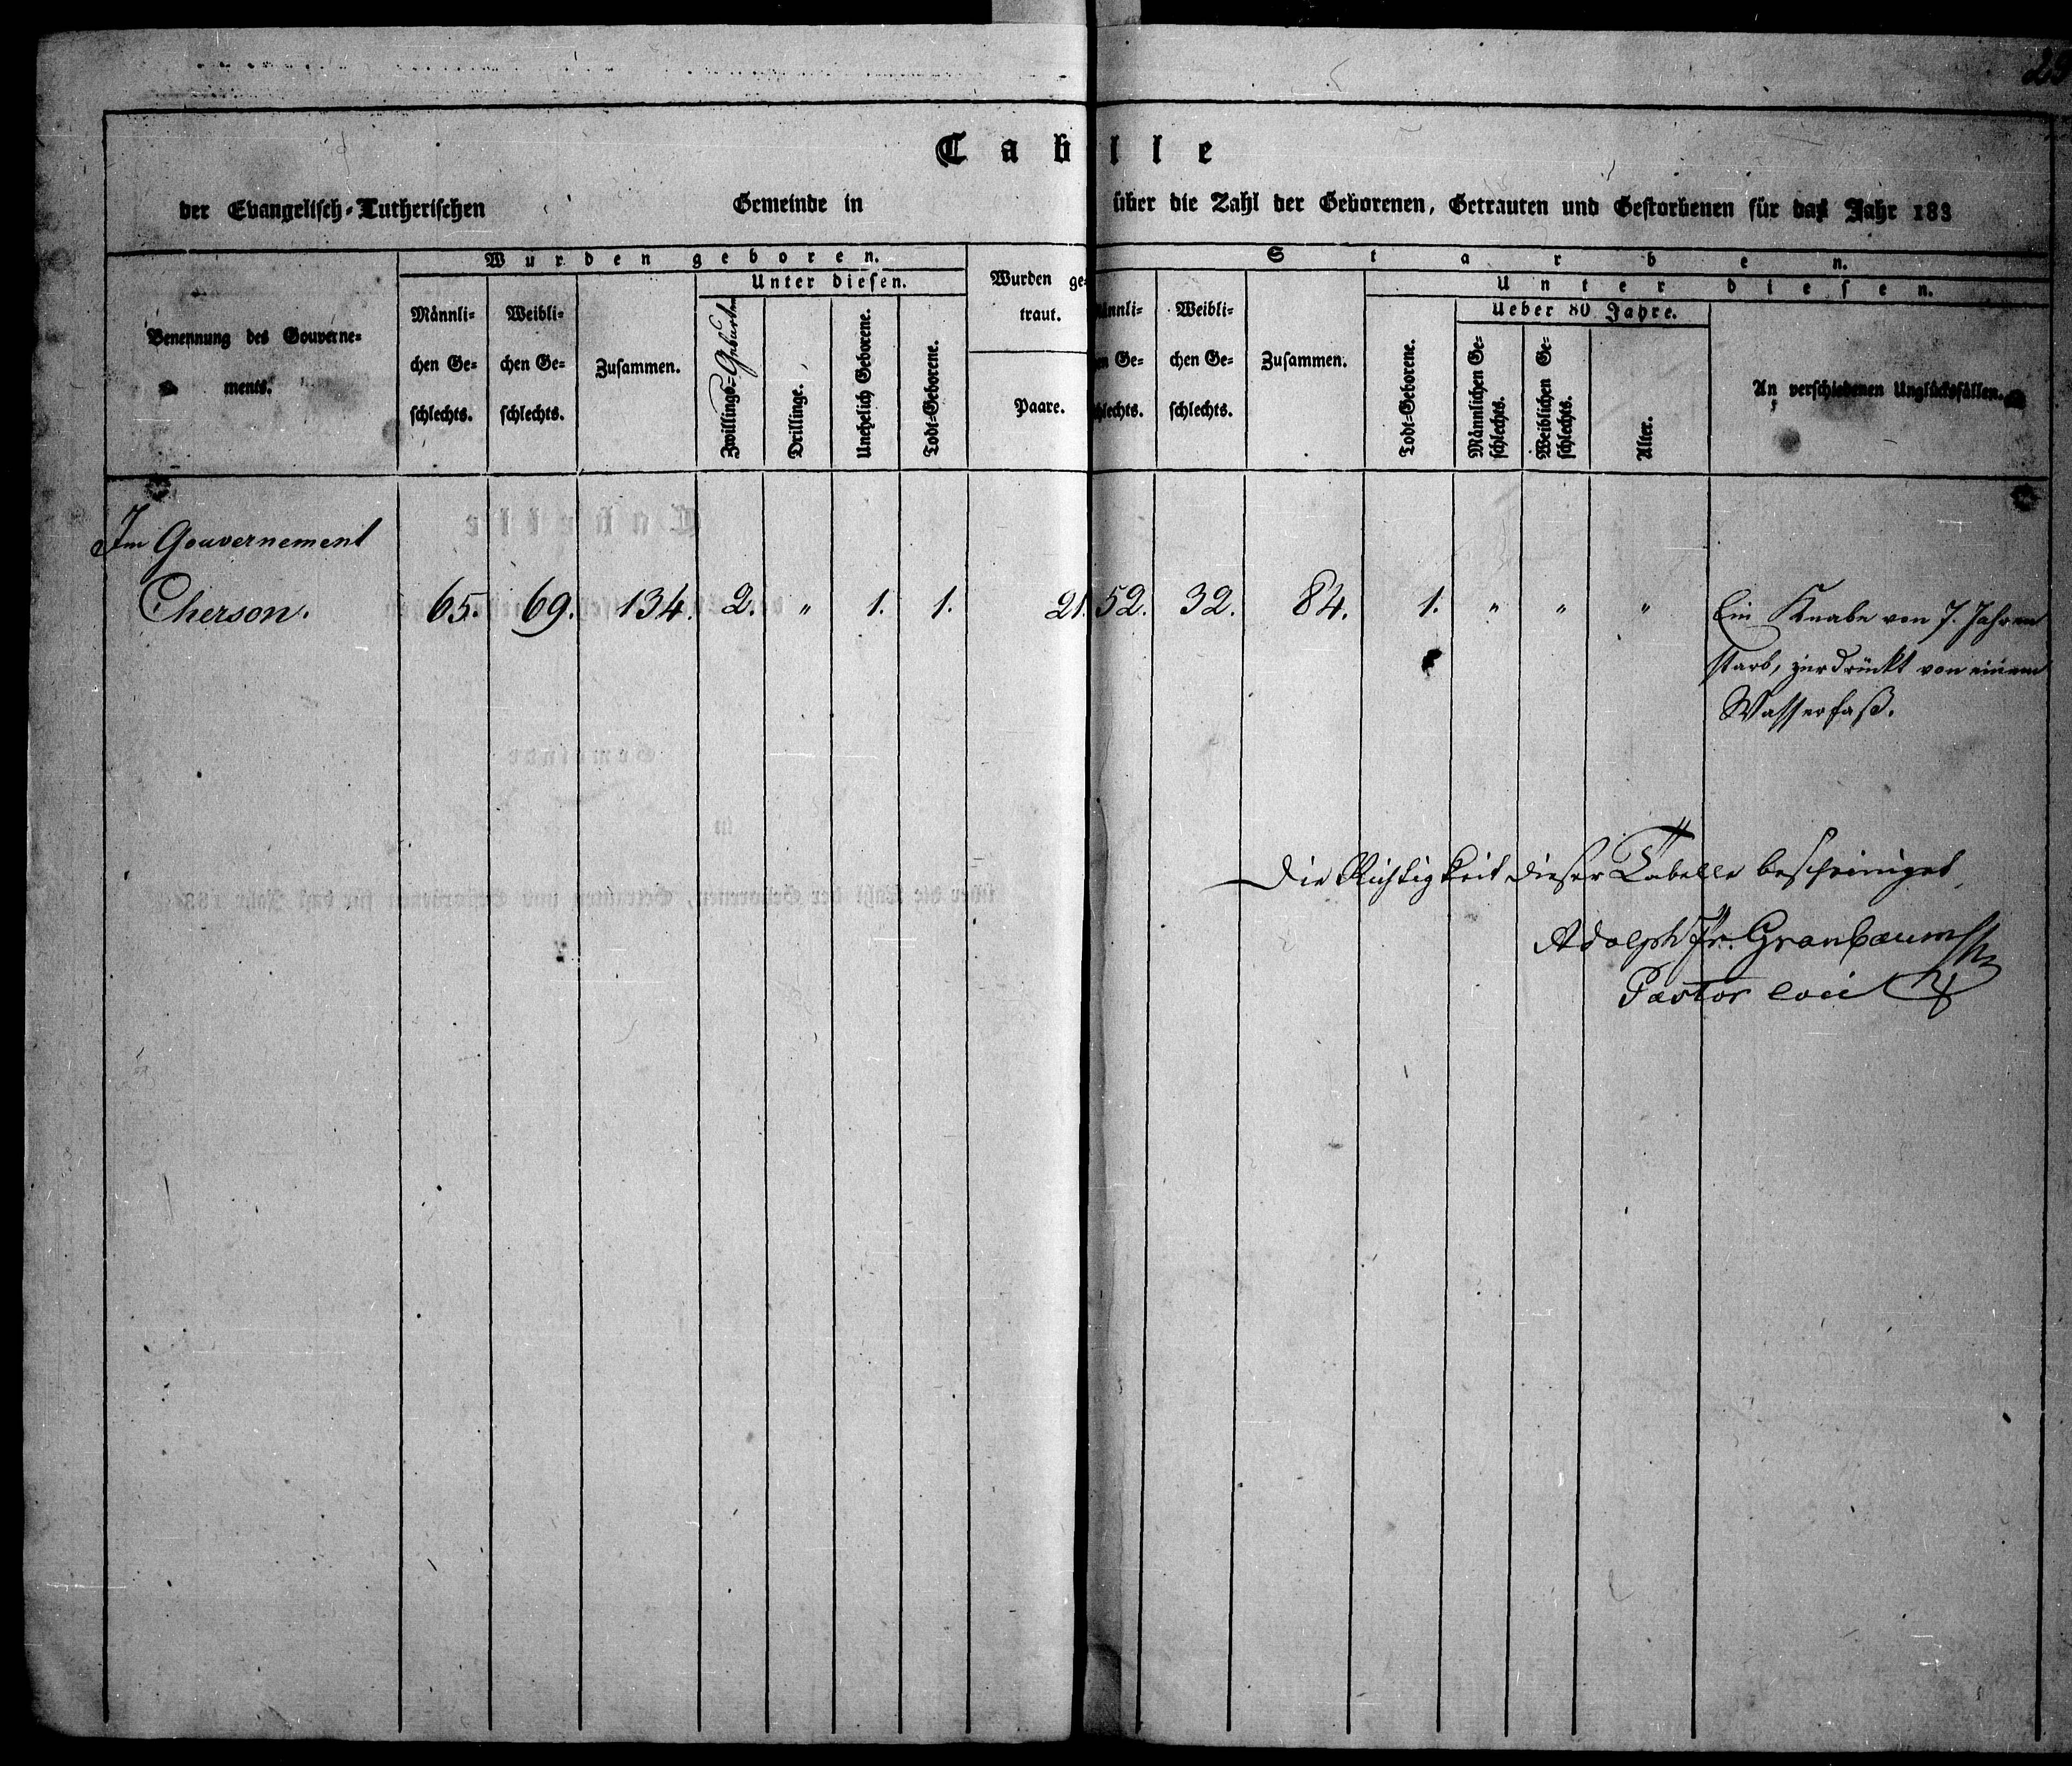 Tabelle
der Evangelisch-Lutherischen Gemeinde in über die Zahl der Geborenen, Getrauten und Gestorbenen für das Jahr 183
Benennung des Gouverne-
ments.
Wurden geboren.
Männli-
chen Ge-
schlechts.
Weibli-
chen Ge-
schlechts.
Zusammen.
Unter diesen.
Zwillings-Geburten
Drillinge.
Unehelich Geborene.
Todt-Geborene.
Wurden ge-
traut.
Paare.
Starben.
Männli-
chen Ge-
schlechts.
Weibli-
chen Ge-
schlechts.
Zusammen.
Unter diesen.
Todt-Geborene.
Ueber 80 Jahre.
Männlichen Ge-
schlechts.
Weiblichen Ge-
schlechts.
Alter.
An verschiedenen Unglücksfällen.
Im Gouvernement
Cherson. 65. 69. 134. 2. " 1. 1. 21. 52. 32. 84. 1. " " "
Ein Knabe von 7. Jahren
starb, zerdrückt von einem
Wasserfaß.
Die Richtigkeit dieser Tabelle bescheiniget
Adolph Fr. Granbaum
Pastor loci